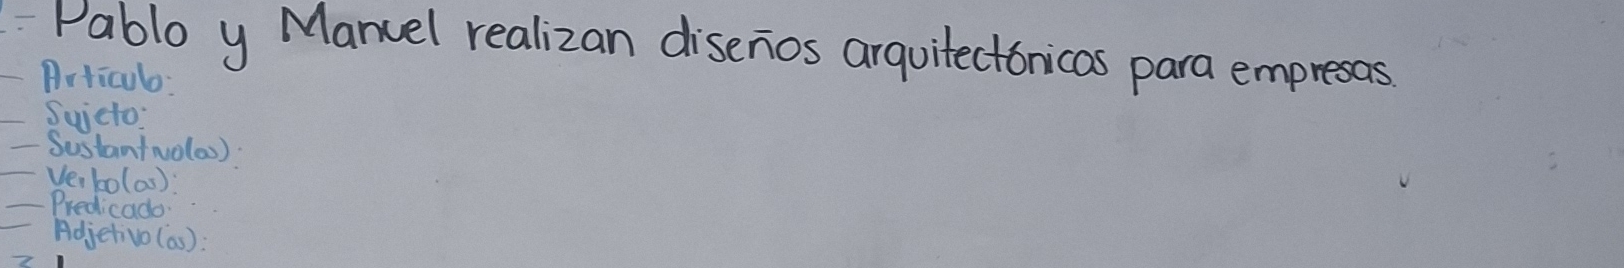 - Pablo y Manuel realizan diseños arquitectónicos para empresas.
- Artículo:
- Sujeto:
- Sustantivo(os):
- Verbo(os):
- Predicado:
- Adjetivo(os):